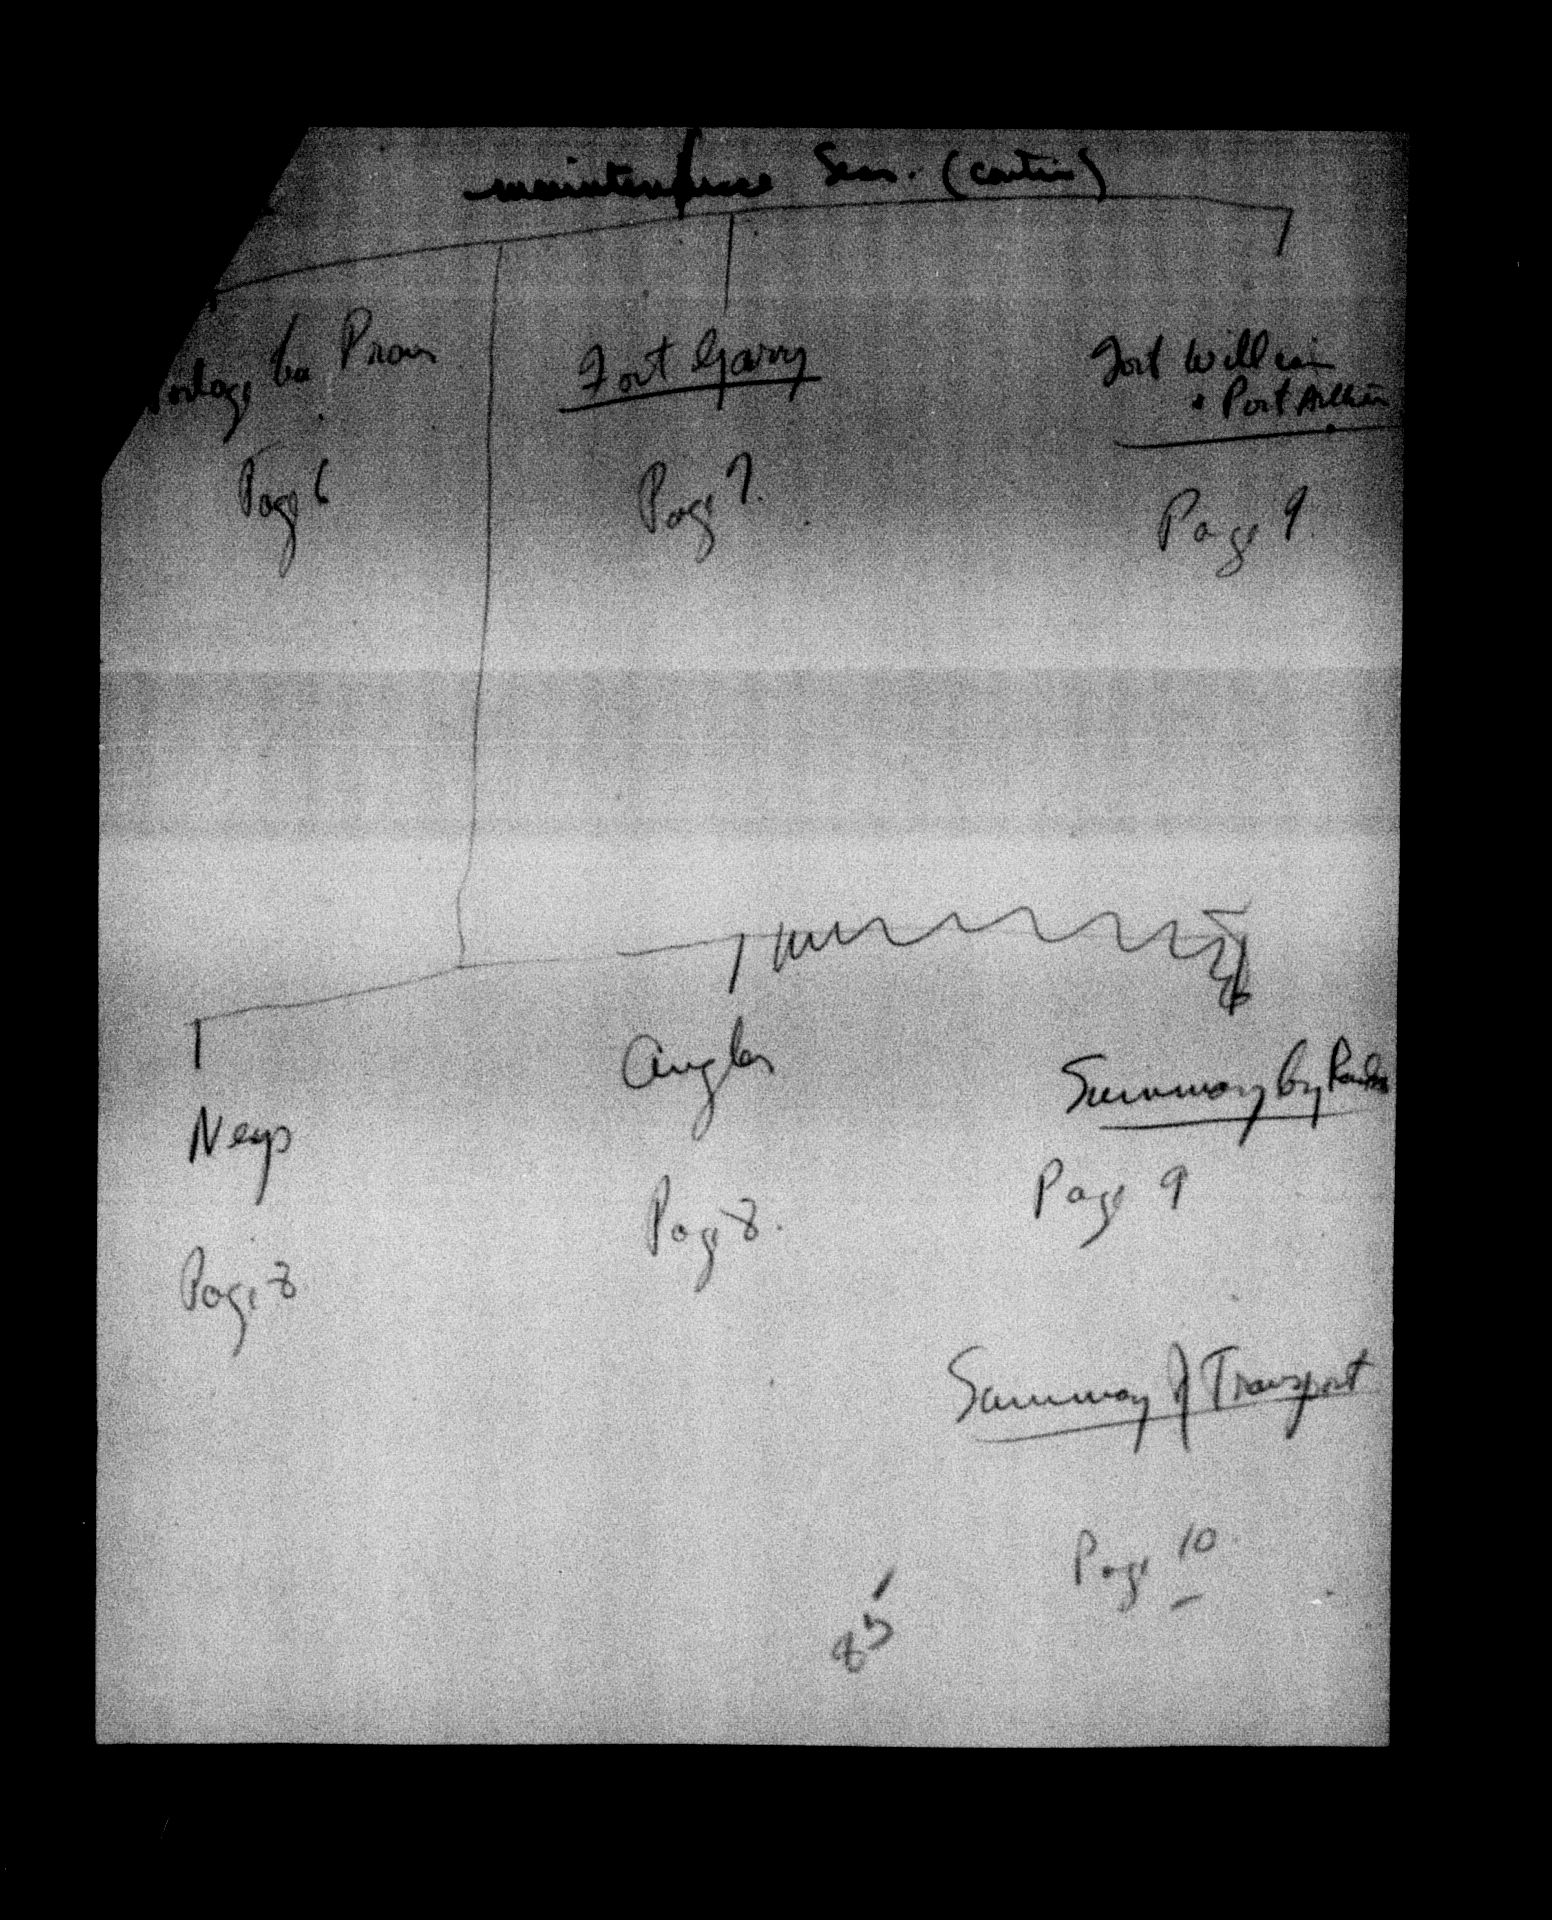 maintenance Sec. (contin)
Portage la Prair
Fort Garry
Fort William
+ Port Arthur
Page 6
Page 7.
Page 9.
Neys
Angler
Summary by Ranks
Page 8
Page 8.
Page 9
Summary of Transport
Page 10.
85